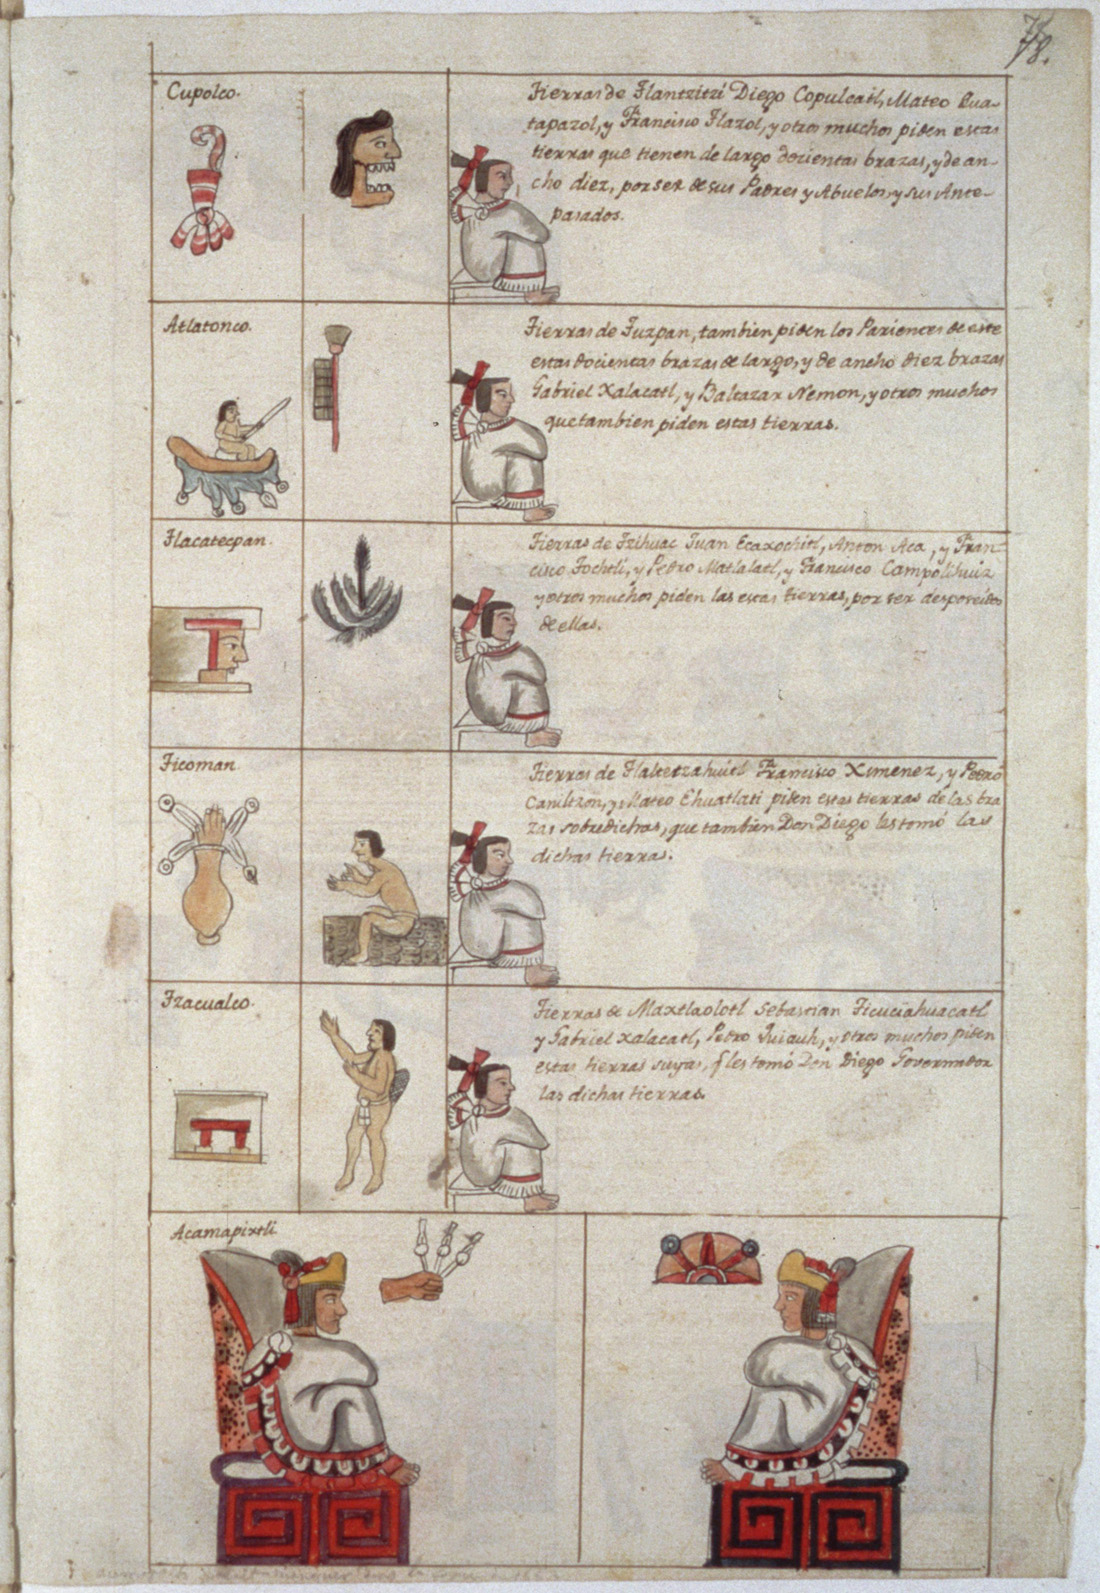 78.
Cupolco.
Tierras de Tlantzitzi Diego Copulcatl, Mateo Qua-
tapazol, y Francisco Tlazol, y otros muchos piden estas
tierras que tienen de largo docientas brazas, y de an-
cho diez, por ser de sus Padres y Abuelos, y sus Ante-
pasados.
Atlatonco.
Tierras de Tuzpan, tambien piden los Parientes de este
estas docientas brazas de largo, y de ancho diez brazas
Gabriel Xalacatl, y Baltazar Nemon, y otros muchos
que tambien piden estas tierras.
Tlacatecpan.
Tierras de Tzihuac Juan Ecaxochitl, Anton Aca, y Fran-
cisco Tochtli, y Pedro Matlalatl, y Francisco
y otros muchos piden las estas tierras, por ser desposeidos
de ellas.
Ticoman.
Tierras de Francisco Ximenez, y Pedro
Caniltzon, y Mateo Chuatlati piden estas tierras de las bra
zas sobredichas, que tambien Don Diego les tomó las
dichas tierras.
Tzacualco.
Tierras de Maxtlaolotl Sebastian
y Gabriel Xalacatl, Pedro Quiauh, y otros muchos piden
estas tierras suyas, q̃ les tomó Don Diego Governador
las dichas tierras.
Acamapixtli